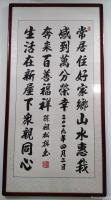 常居住好家鄉山水惠我
感到萬分榮幸
奔來百善福祥
生活在新屋下家親同心